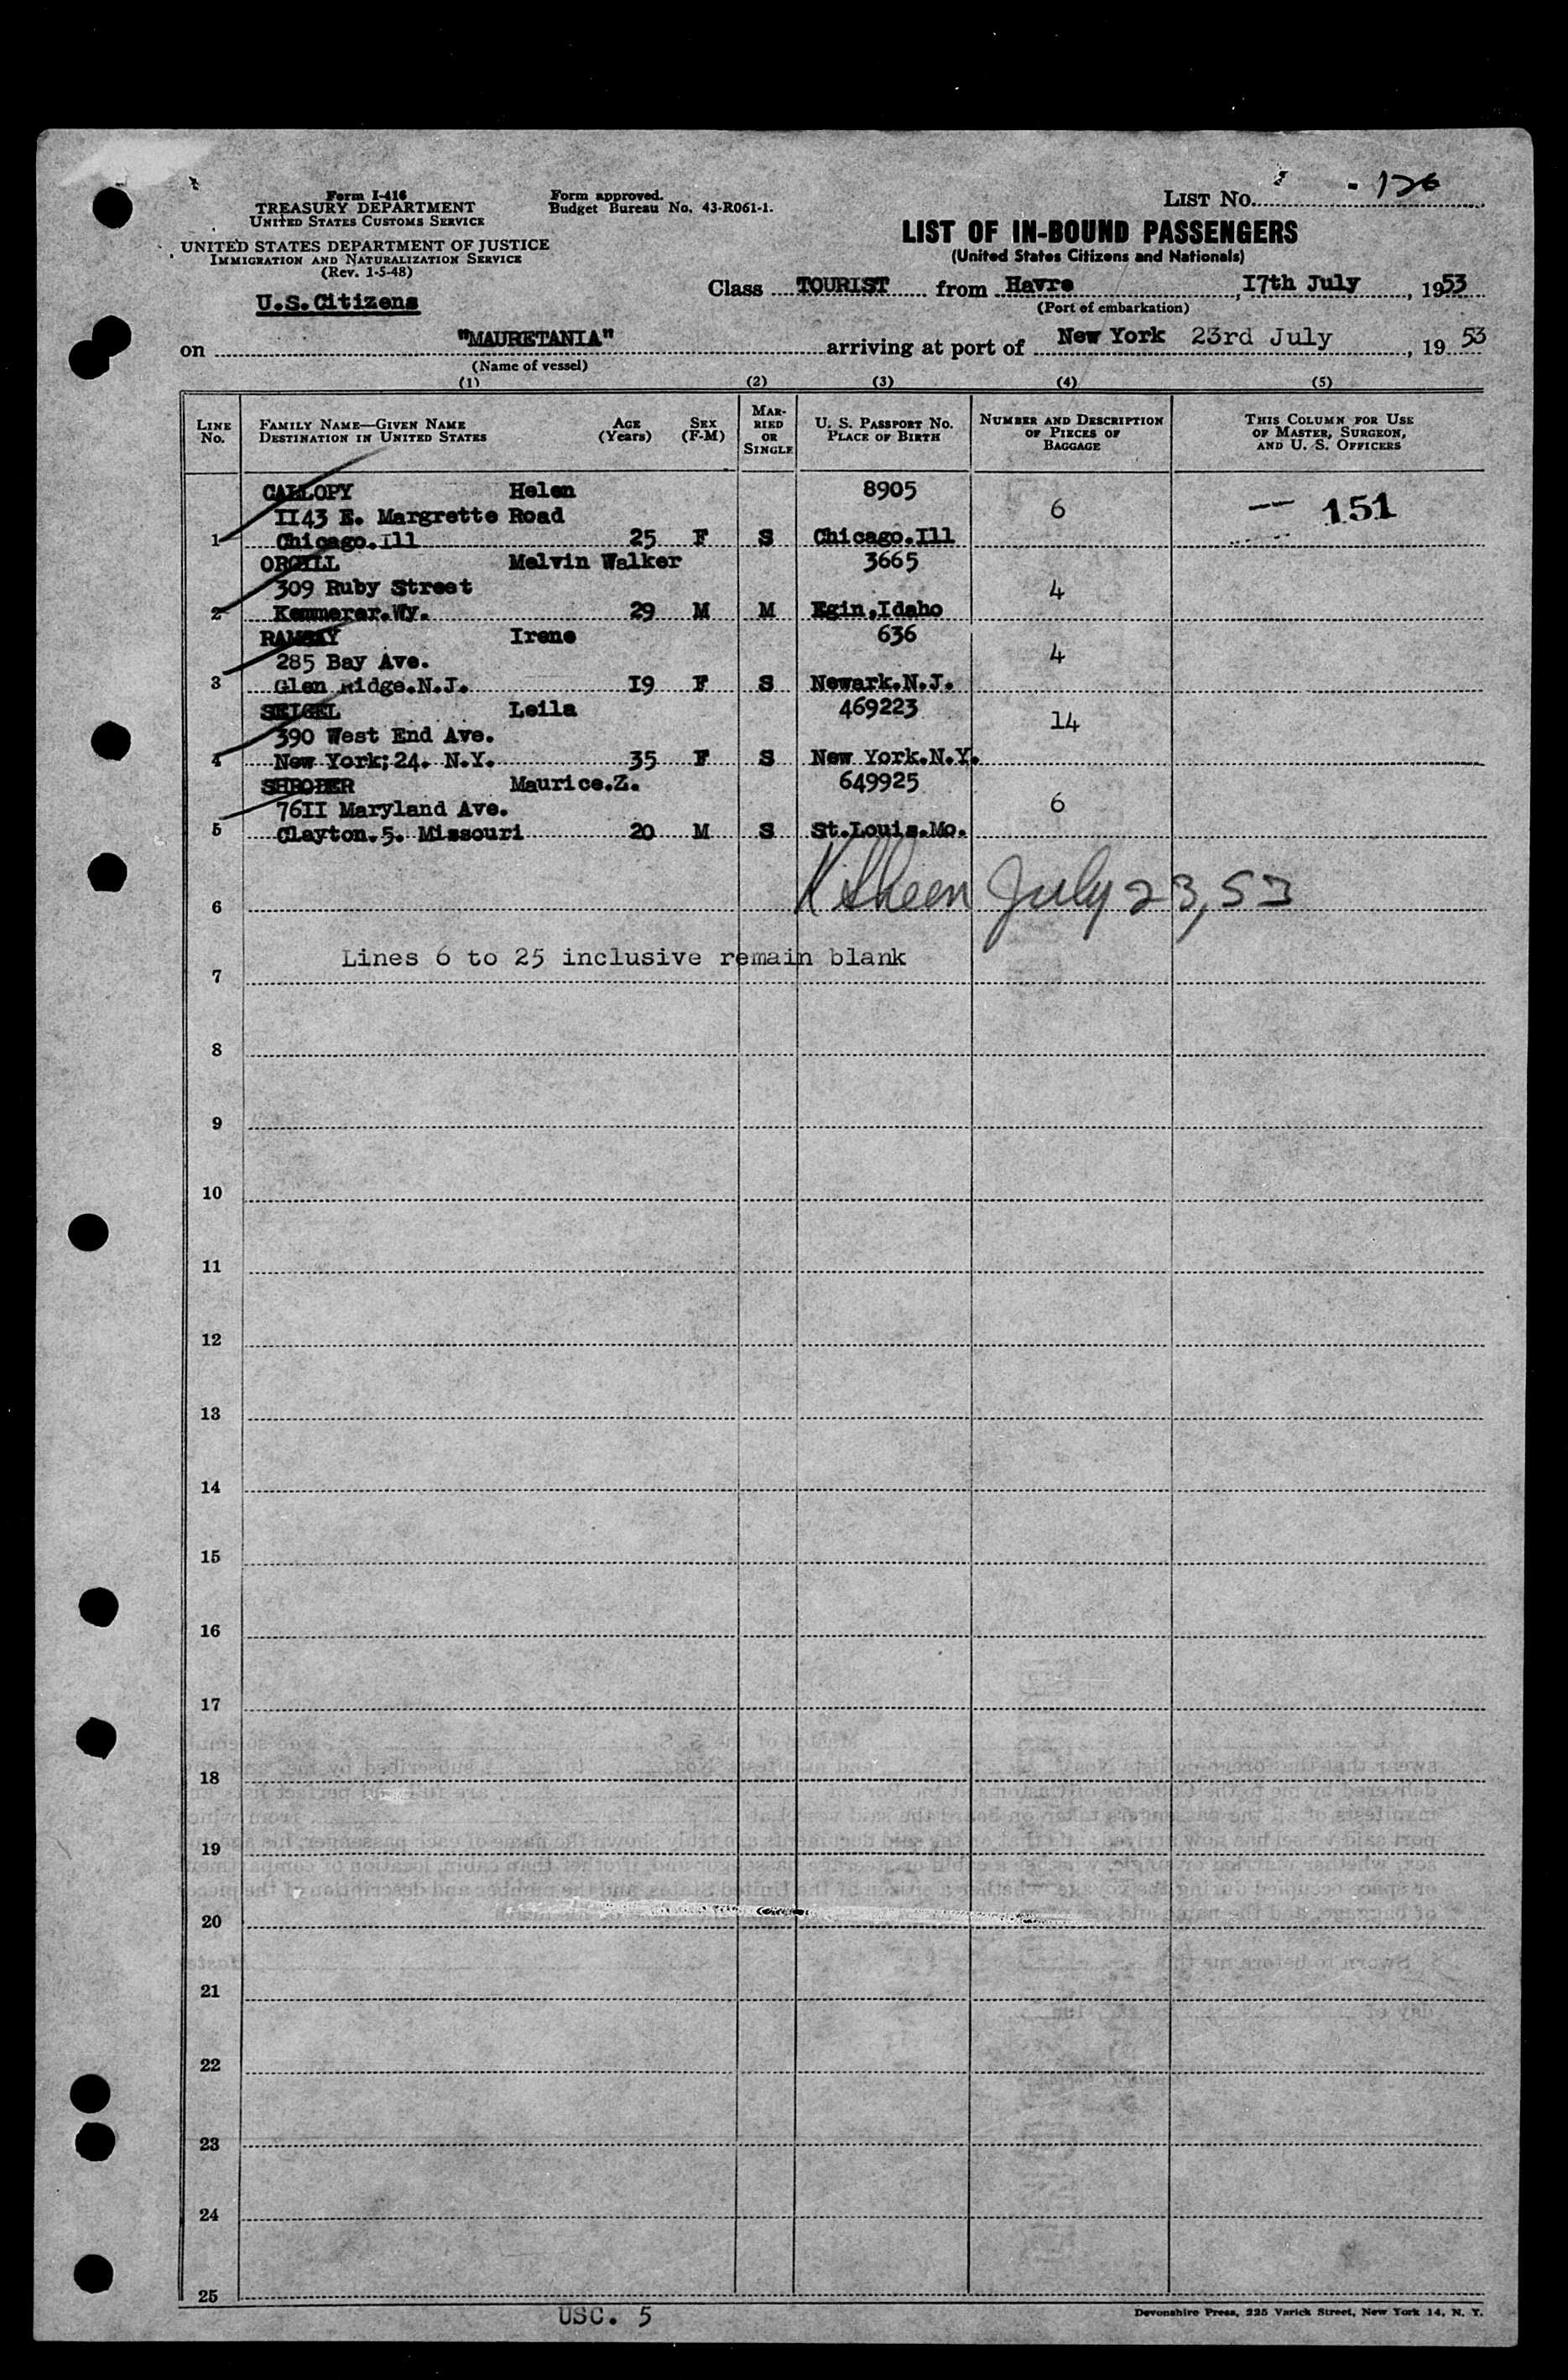 Form I-416
TREASURY DEPARTMENT
UNITED STATES CUSTOMS SERVICE
UNITED STATES DEPARTMENT OF JUSTICE
IMMIGRATION AND NATURALIZATION SERVICE
(Rev. 1-5-48)
U.S.Citizens
Form approved.
Budget Bureau No. 43-R061-1.
LIST NO. - 126
LIST OF IN-BOUND PASSENGERS
(United States Citizens and Nationals)
Class TOURIST from Havre, 17th July, 1953
(Port of embarkation)
on "MAURETANIA" arriving at port of New York 23rd July, 19 53
(Name of vessel)
(1) (2) (3) (4) (5)
LINE NO.
FAMILY NAME—GIVEN NAME
DESTINATION IN UNITED STATES
AGE (Years)
SEX (F-M)
MARRIED OR SINGLE
U. S. PASSPORT NO.
PLACE OF BIRTH
NUMBER AND DESCRIPTION OF PIECES OF BAGGAGE
THIS COLUMN FOR USE OF MASTER, SURGEON, AND U. S. OFFICERS
CALLOPY Helen 8905
II43 E. Margrette Road 6 — 151
1 Chicago.Ill 25 F S Chicago.Ill
ORGILL Melvin Walker 3665
309 Ruby Street 4
2 Kemmerer.Wy. 29 M M Egin,Idaho
RAMSAY Irene 636
285 Bay Ave. 4
3 Glen Ridge.N.J. I9 F S Newark.N.J.
SEIGEL Leila 469223
390 West End Ave. 14
4 New York;24. N.Y. 35 F S New York.N.Y.
SHRODER Maurice.Z. 649925
76II Maryland Ave. 6
5 Clayton.5. Missouri 20 M S St.Louis.Mo.
6 July 23, 53
Lines 6 to 25 inclusive remain blank
7
8
9
10
11
12
13
14
15
16
17
18
19
20
21
22
23
24
25
USC. 5
Devonshire Press, 225 Varick Street, New York 14, N. Y.